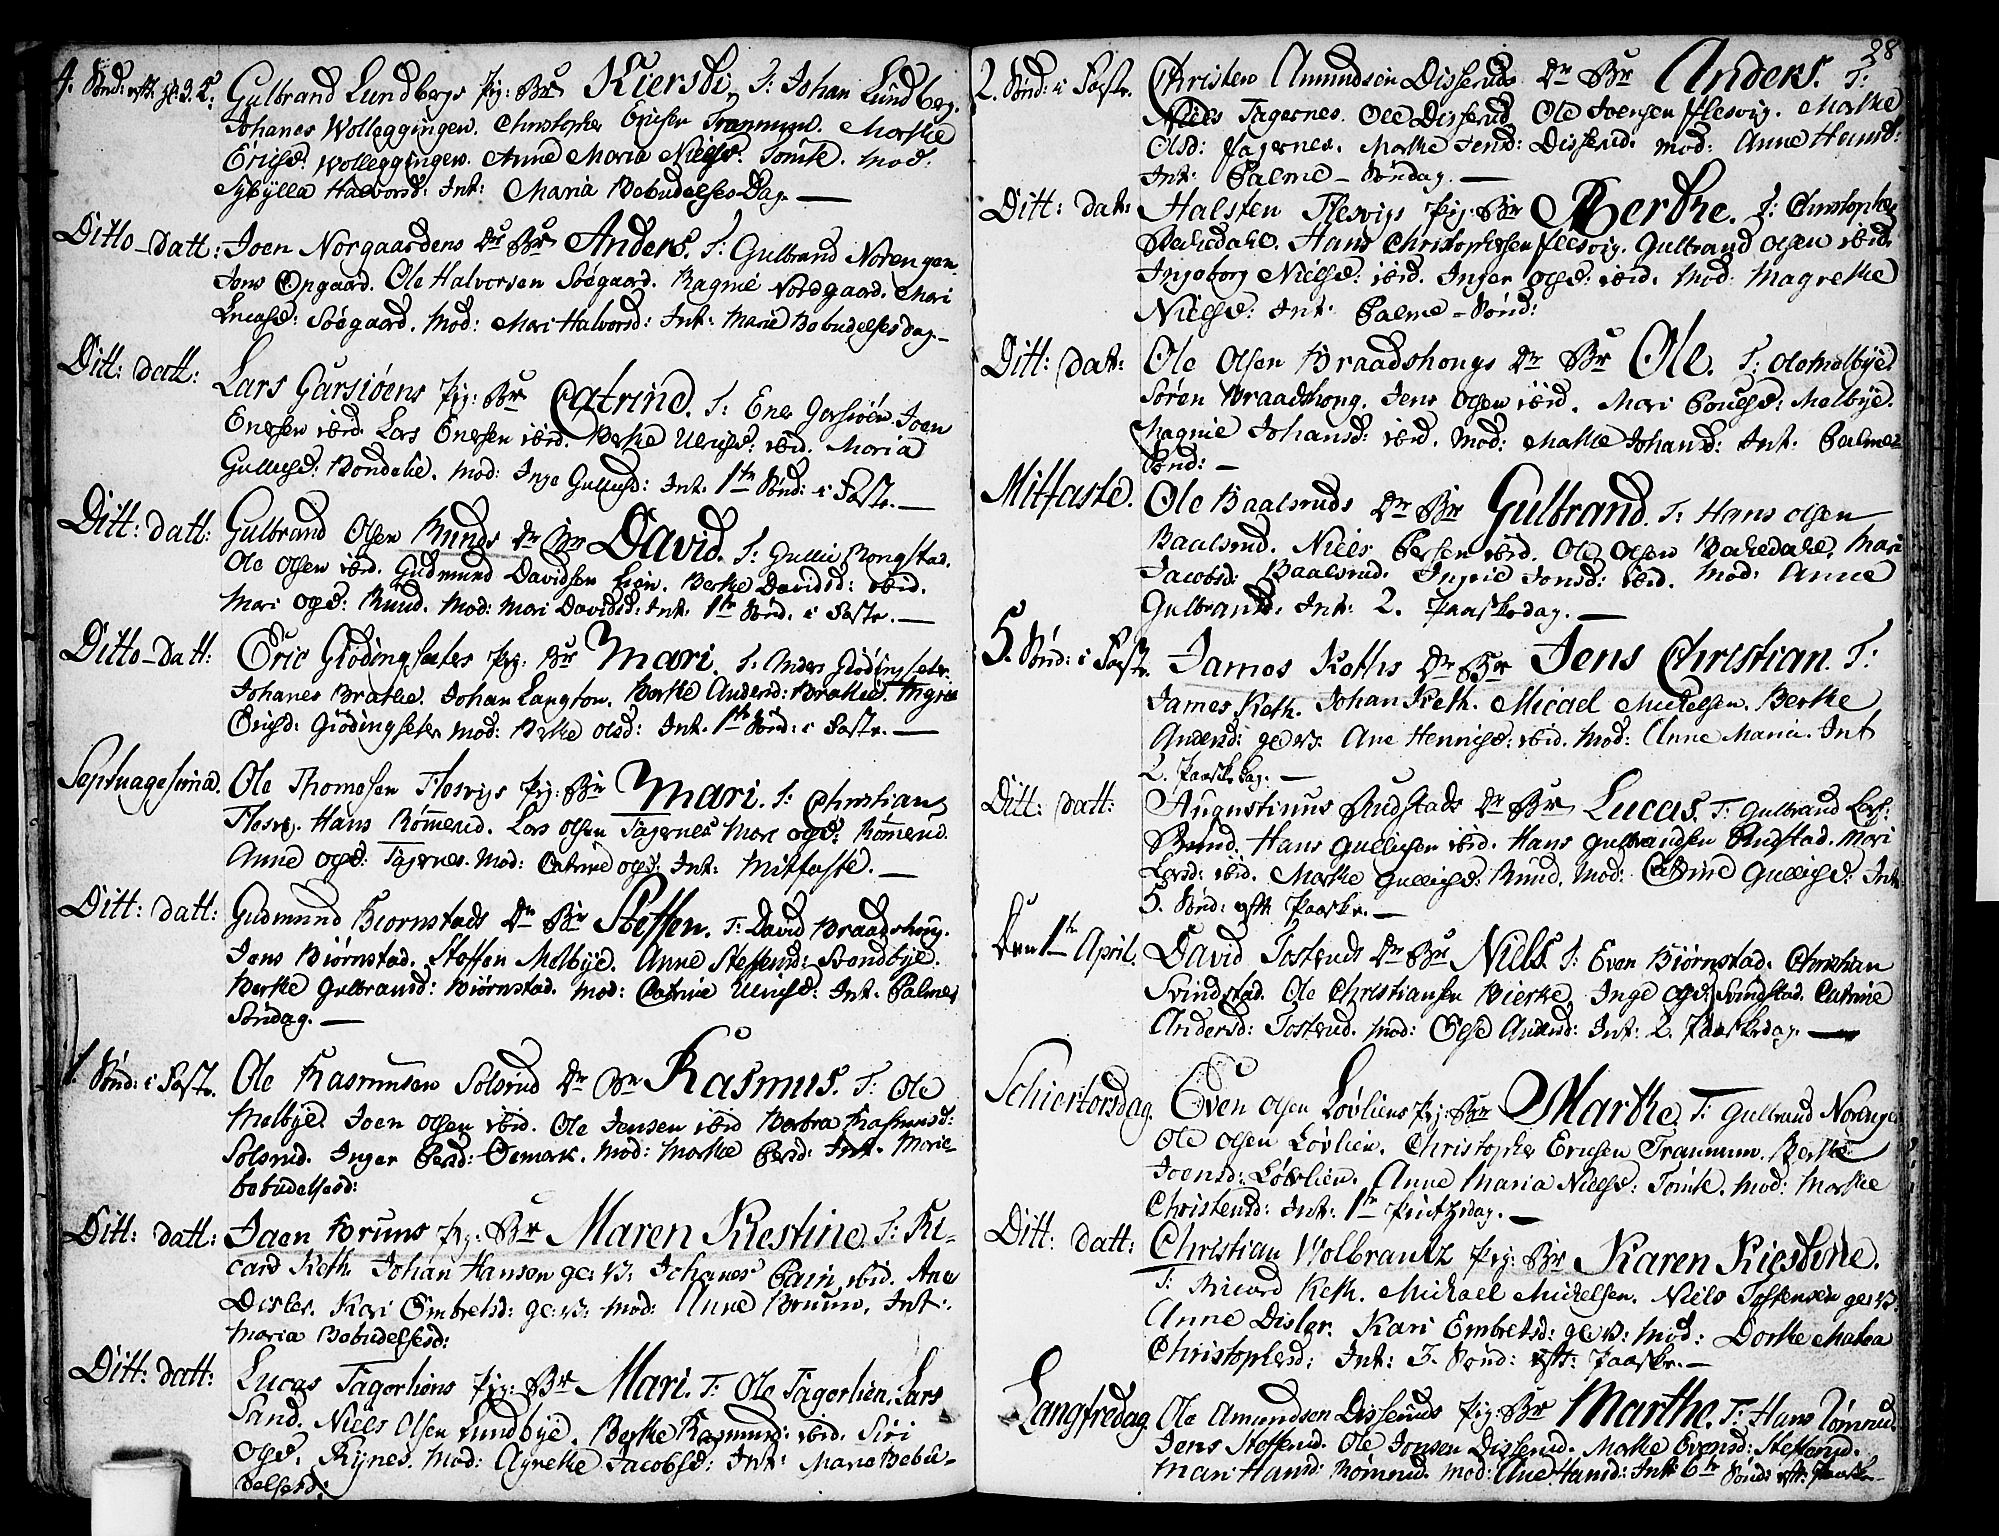 4. Sønd: eft: H: 3. K: Gulbrand Lundbergs Pig: Br: Kiersti, T: Johan Lundberg.
Johanes Wolleggingen. Christopher Ericsen Tranmun. Marthe
Ericsd: Wolleggingen. Anne Maria Nielsd: Tomte. Mod:
Sybylla Halvorsd: Int: Maria Bebudelses Dag.—
Ditto-datt: Joen Norgaardens Dr: Br Anders. T: Gulbrand Norengen.
Jens Opgaard. Ole Halvorsen Søegaard. Ragnie Nordgaard. Mari
Lucasd: Søegaard. Mod: Mari Halvorsd: Int: Mariæ Bebudelses dag.—
Ditt: datt: Lars Garsiøens Pig: Br Catrine. T: Ener Garsiøen. Joen
Enersen ibid. Lars Enersen ibid. Berthe Ulrichsd: ibid. Maria
Gullichsd: Bondelie. Mod: Inge Gullichsd: Int. 1te Sønd: i Faste.—
Ditt: datt: Gulbrand Olsen Ruuds Dr Br David. T: Gullic Rongstad.
Ole Olsen ibid. Gudmund Davidsen Lien. Berthe Davidsd: ibid.
Mari Olsd: Ruud. Mod: Mari Davidsd: Int: 1te Sønd. i Faste.—
Ditto-datt: Eric Glødingsæters Pig: Br Mari. T: Anders Glødingsæter.
Johanes Brathe. Johan Langton. Berthe Andersd: Brathe. Ingrie
Erichsd: Glødingsæter Mod: Berthe Olsd: Int. 1te Sønd: i Faste.—
Septuagesima. Ole Thomesen Flesvigs Pig: Br Mari. T: Christian
Flesvig. Hans Rømerud. Lars Olsen Tagernes Mari Olsd: Rømerud.
Anne Olsd: Tagernes. Mod: Catrine Olsd: Int: Mitfaste.—
Ditt: datt: Gudmund Biørnstads Dr Br Steffen. T: David Braadshoug.
Jens Biørnstad. Steffen Melbye. Anne Steffensd: Sandbye.
Berthe Gulbransd: Biørnstad. Mod: Catrine Ulrichsd: Int. Palme
Søndag.—
1. Sønd: i Faste. Ole Rasmusen Solsrud Dr Br Rasmus. T: Ole
Melbye. Joen Olsen ibid. Ole Jensen ibid Barbra Rasmusd:
Solsrud. Inger Persd: Semark. Mod: Marthe Persd: Int. Marie-
bebudelsesd:
Ditt: datt: Jaen Bruns Pig: Br Maren Kiestine. T: Ri-
card Keth. Johan Hansen ge: V: Johanes Pain ibid. Ane
Disler. Kari Embretsd: ge: V: Mod: Anne Bruun. Int:
Maria Bebudelsesd:
Ditt: datt: Lucas Tagerliens Pig: Br Mari. T: Ole Tagerlien. Lars
Sand. Niels Olsen Lundbye. Berthe Rasmusd: ibid. Siri
Olsd. Rynes. Mod: Agrethe Jacobsd: Int: Maria Bebu-
delsesd:
28
2. Sønd: i Faste. Christen Amundsen Disseruds Dr Br Anders. T:
Niels Fagernes. Ole Disserud Ole Joensen Flesvig. Marthe
Olsd: Fagernes. Marthe Jensd: Disserud. Mod: Anne Hansd:
Int: Palme-Søndag.—
Ditt: datt: Halsten Flesvigs Pig: Br Berthe. T: Christopher
Bakedahl. Hans Christophersen Flesvig. Gulbrand Olsen ibid.
Ingeborg Nielsd: ibid. Inger Olsd: ibid. Mod: Magrethe
Nielsd: Int: Palme-Sønd:
Ditt: datt: Ole Olsen Braadshougs Dr Br Ole. T: Ole Melbye
Søren Braadshoug. Jens Olsen ibid. Mari Poulsd: Melbye.
Magnie Johansd: ibid. Mod: Malthe Johansd: Int: Palme
Sønd:—
Mitfaste. Ole Baalsruds Dr Br Gulbrand. T: Hans Olsen
Baalsrud. Niels Persen ibid. Ole Olsen Bakedahl. Mari
Jacobsd: Baalsrud. Ingrid Jonsd: ibid. Mod: Anne
Gulbrandsd. Int: 2. Paaskedag.—
5. Sønd: i Faste. James Keths Dr Br Jens Christian. T:
James Keth. Johan Keth. Micael Mickelsen. Berthe
Andersd: ge: V: Ane Henrichsd: ibid. Mod: Anne Maria. Int
2. Paaskedag.—
Ditt: datt: Augustinus Rudstads Dr Br Lucas. T: Gulbrand Lars:
Ruud. Hans Gullichsen ibid. Hans Gulbrandsen Rudstad. Mari
Larsd: ibid. Marthe Gullichsd: Ruud. Mod: Catrine Gullichsd: Int
5. Sønd: eft: Paaske.—
Den 1te April. David Tosteruds Dr Br Niels T: Even Biørnstad. Christian
Svindstad. Ole Christiansen Bierke. Inge Olsd: Svindstad. Catrine
Andersd: Tosterud. Mod: Else Andersd: Int: 2. Paaskedag.—
Schiertorsdag. Even Olsen Løvliens Pig: Br Marthe. T: Gulbrand Norengen
Ole Olsen Løvlien. Christopher Ericsen Tranmun. Berthe
Joensd: Løvlien. Anne Maria Nielsd: Tomte. Mod: Marthe
Christensd: Int: 1te Pintzedag.—
Ditt: datt: Christian Wolbrantz Pig: Br Karen Kiestine.
T: Ricard Keth. Mickael Mickelsen. Niels Tostensen ge: V:
Anne Disler. Kari Embretsd: ge: V: Mod: Dorthe Malea
Christophersd: Int: 3. Sønd: eft: Paaske.—
Langfredag. Ole Amundsen Disseruds Pig: Br Marthe. T: Hans Rømrud.
Jens Steffensd. Ole Jonsen Disserud. Marthe Evensd: Stefferud.
Mari Hansd: Rømrud. Mod: Ane Hansd: Int: 6te Sønd: eft: Paaske